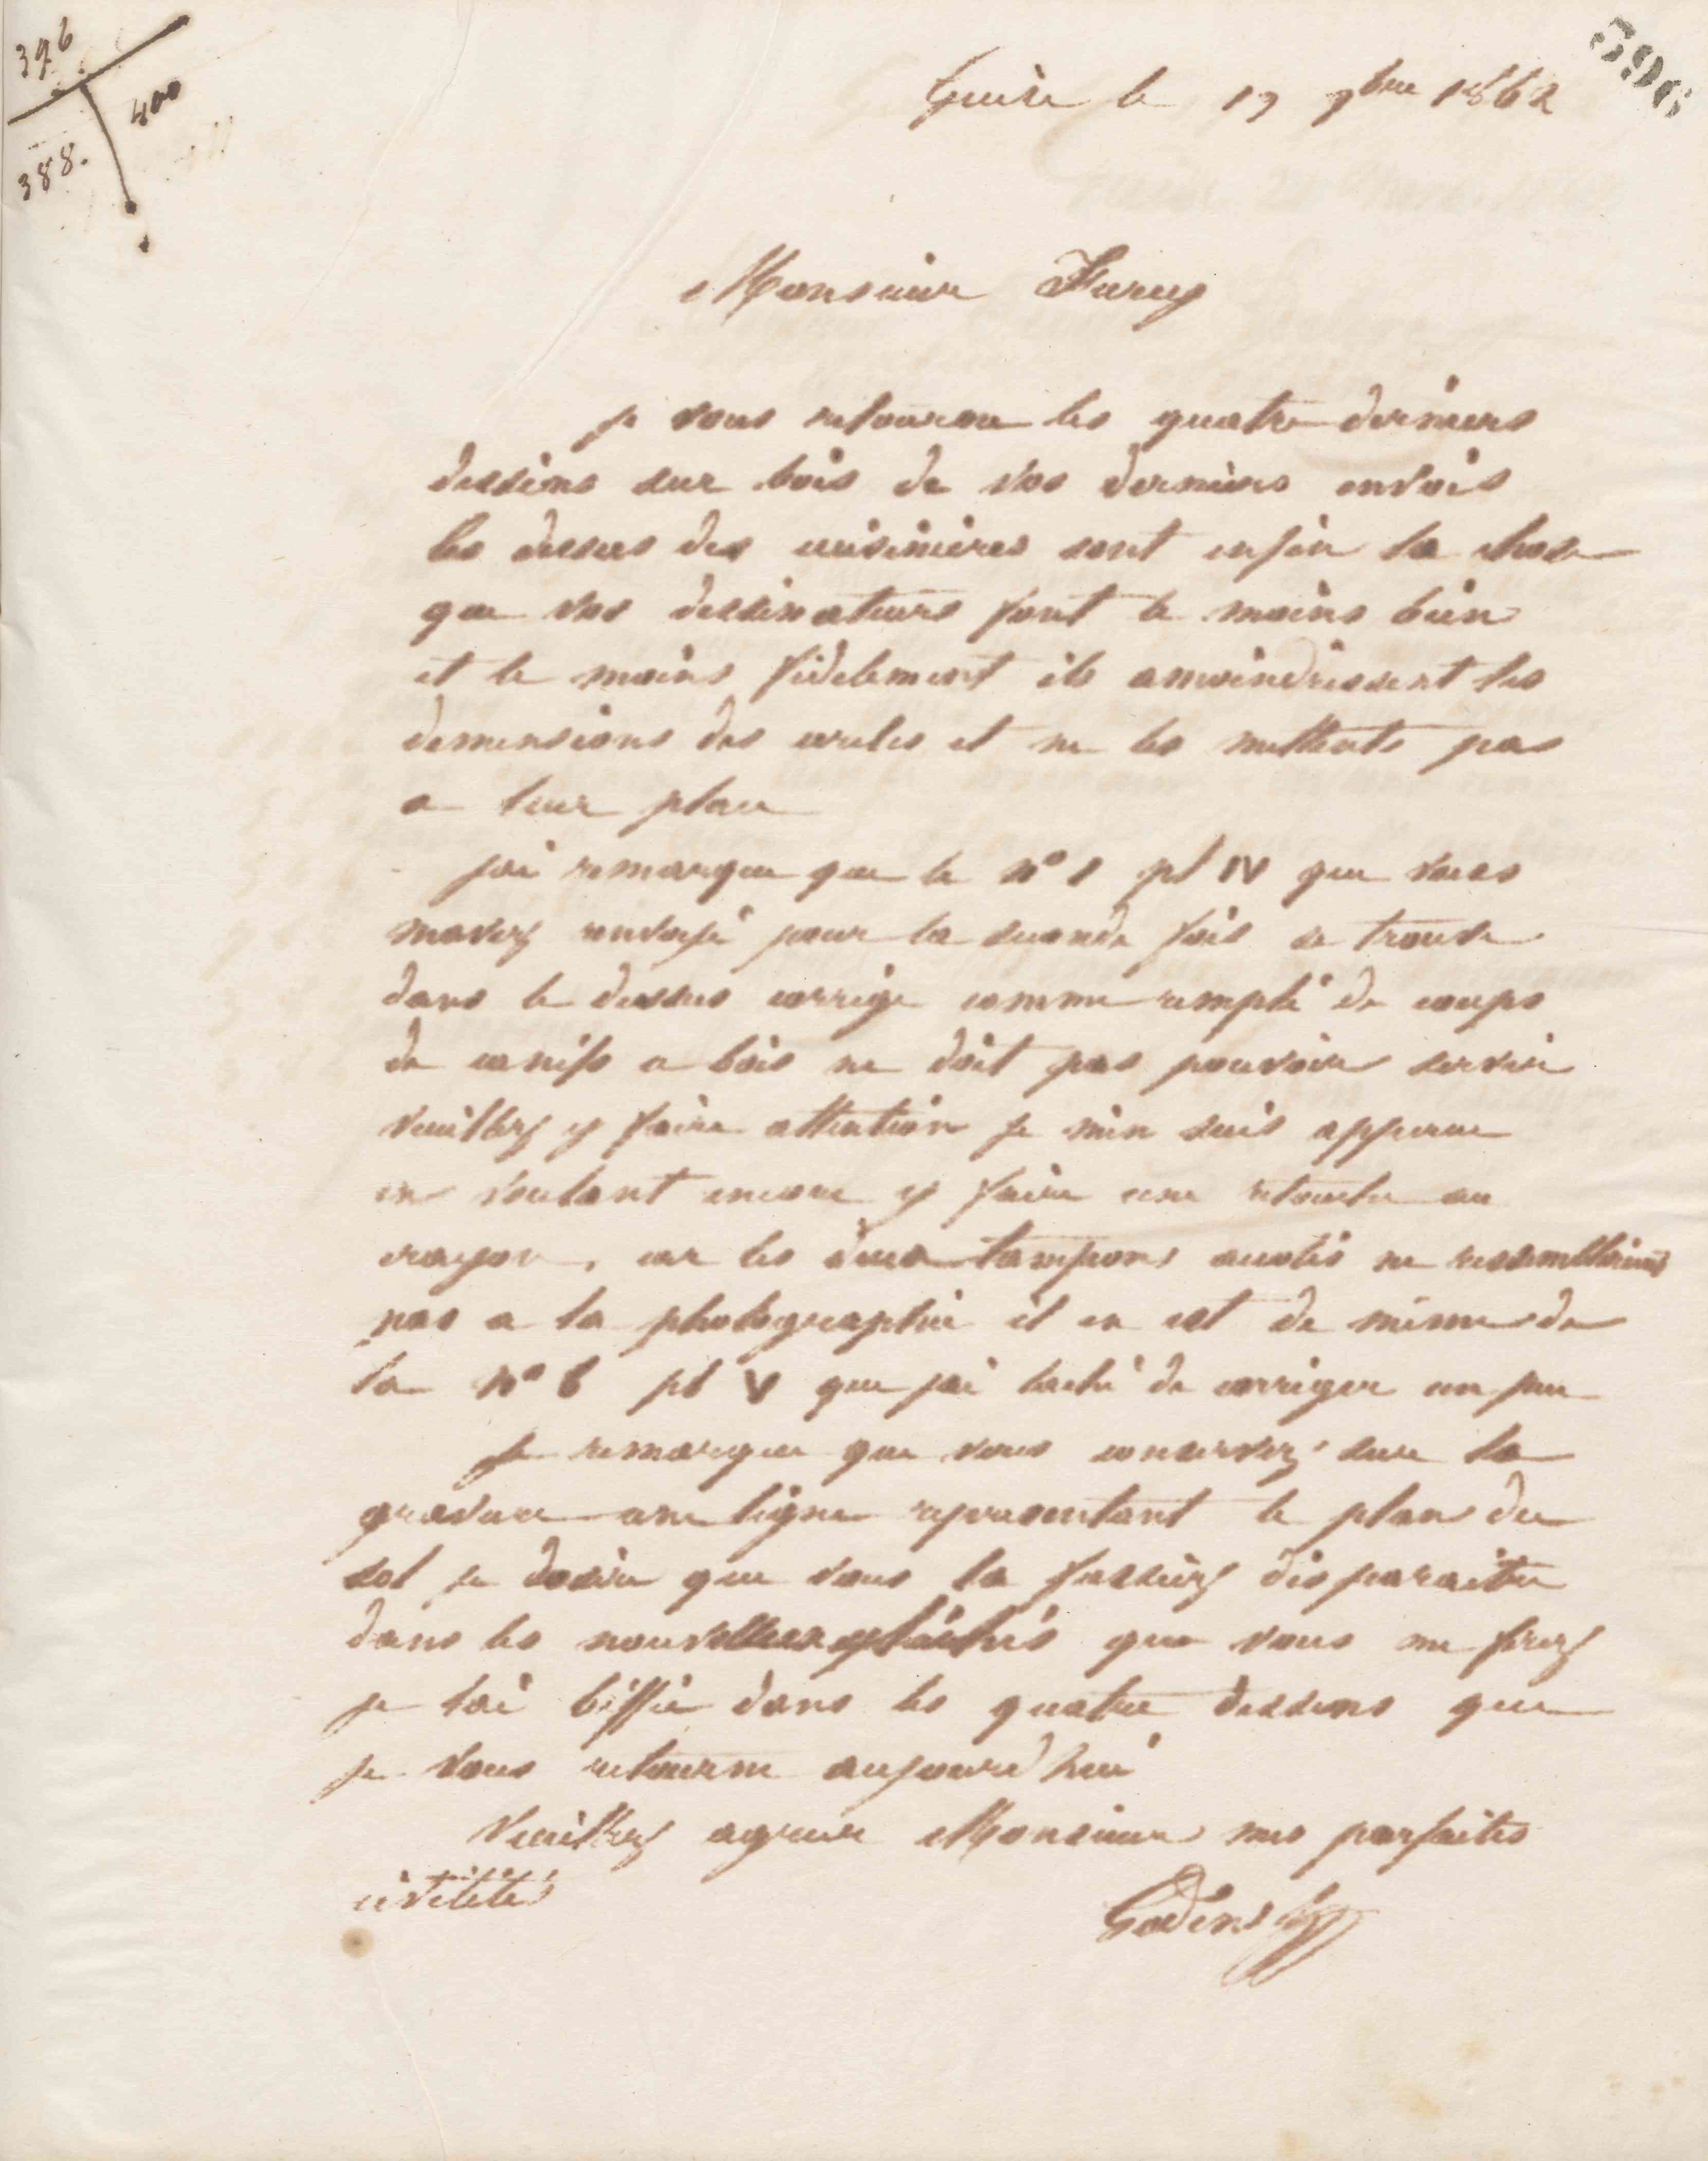 396
400
388.
396
Guise le 19 9bre 1862
Monsieur
je vous retourne les quatre derniers
dessins sur bois de vos derniers envois
les dessus des cuisinières sont enfin la chose
que vos dessinateurs font le moins bien
et le moins fidelement ils amoindrissent les
demensions des cercles et ne les mettents pas
a leur place
jai remarque que le n° 1 pl IV que vous
mavez renvoyé pour la seconde fois se trouve
dans le dessus corrige comme rempli de coups
de canifs a bois ne doit pas pouvoir servir
veuillez y faire attention je min suis appercu
en voulant encore y faire une retouche au
crayon, car les deux tampons ne ressemblaient
pas a la photographie il en est de meme de
la n° 6 pl V que jai taché de corriger un peu
Je remarque que vous conservez sur la
gravure une ligne representant le plan du
sol je desire que vous la fassiez disparaitre
dans les nouveaux clichés que vous me ferez
je lai biffée dans les quatre dessins que
je vous retourne aujourd'hui
Veuillez agreer Monsieur mes parfaites
civilités
Godin